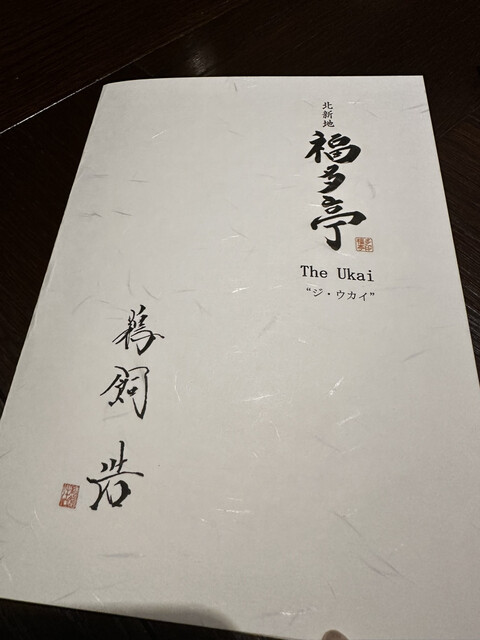 北新地
福多亭
The Ukai
“ジ・ウカイ”
鵜飼 浩